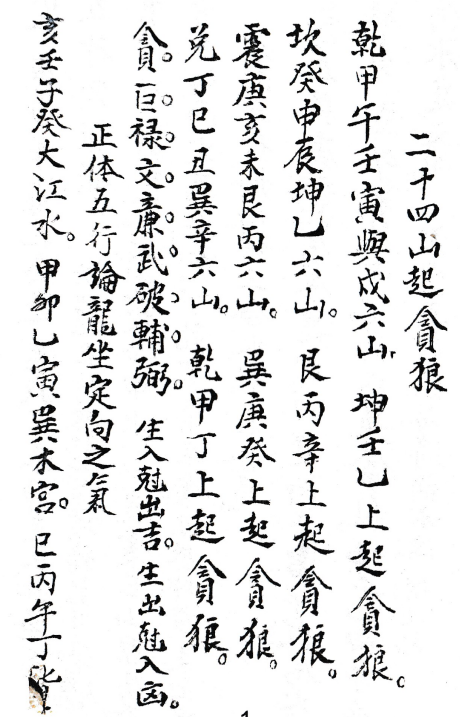 二十四山起貪狼
乾甲午壬寅與戌六山 坤壬乙上起貪狼。
坎癸申辰坤乙六山。 艮丙辛上起貪狼。
震庚亥未艮丙六山。 巽庚癸上起貪狼。
兌丁巳丑巽辛六山。 乾甲丁上起貪狼。
貪。巨。禄。文。廉。武。破。輔。弼。 生入尅出吉。生出尅入凶。
正体五行論龍坐定向之氣
亥壬子癸大江水。甲卯乙寅巽木宮。巳丙午丁